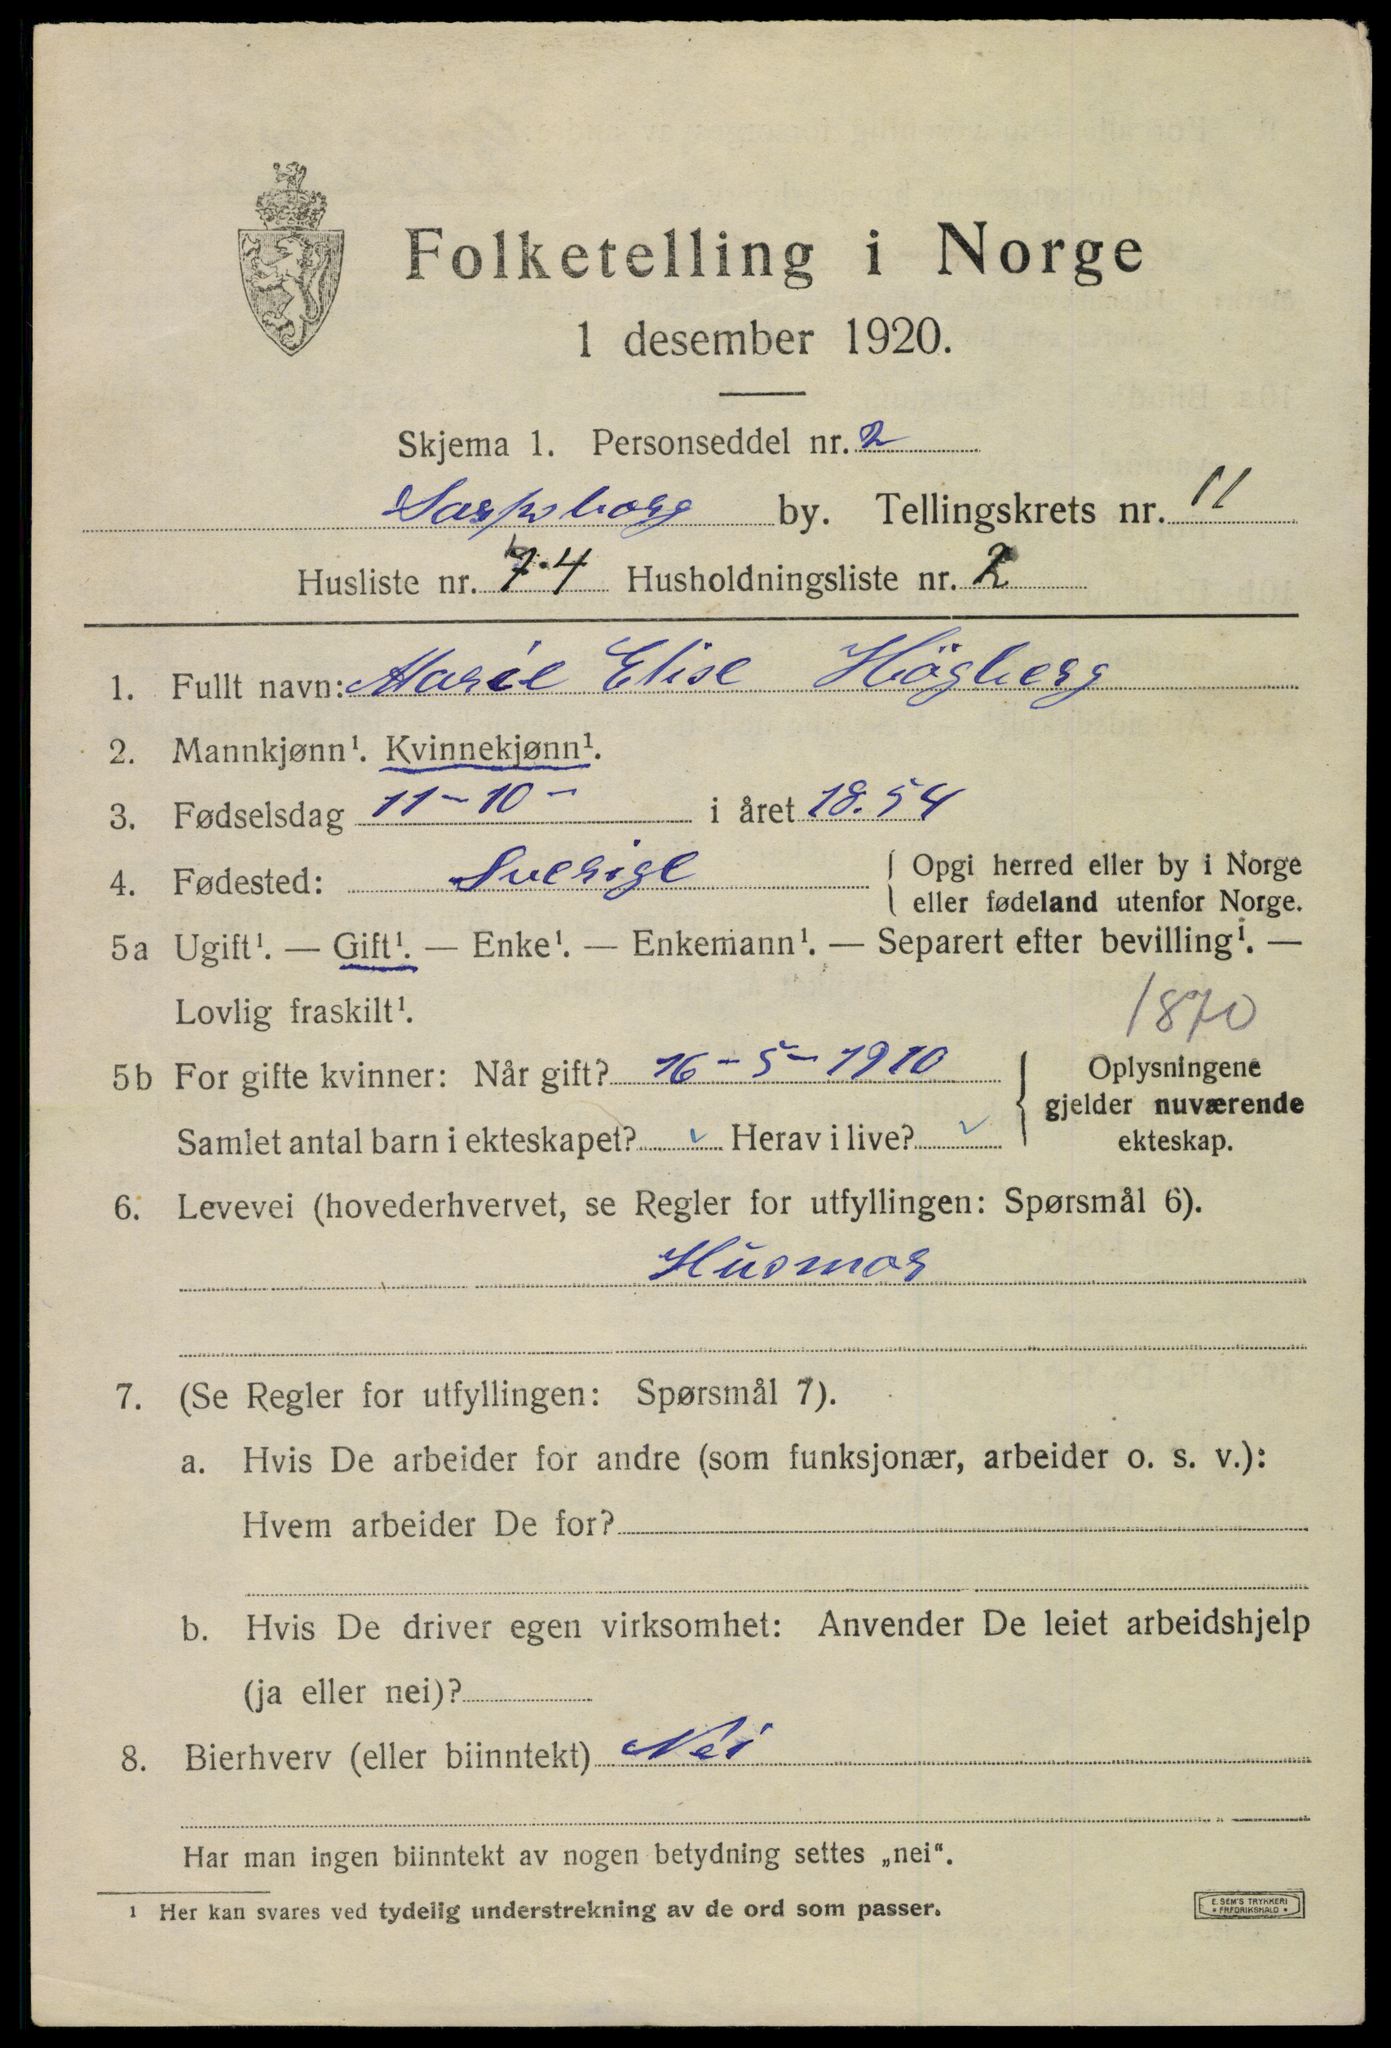 Folketelling i Norge
1 desember 1920.
Skjema 1. Personseddel nr. 2
Sarpsborg by. Tellingskrets nr. 11
Husliste nr. 74 Husholdningsliste nr. 2
1. Fullt navn: Marie Elise Högberg
2. Mannkjønn¹. Kvinnekjønn¹.
3. Fødselsdag 11-10- i året 1854
4. Fødested: Sverige { Opgi herred eller by i Norge
eller fødeland utenfor Norge.
5a Ugift¹. — Gift¹. — Enke¹. — Enkemann¹. — Separert efter bevilling¹. —
Lovlig fraskilt¹.
1870
5b For gifte kvinner: Når gift? 16-5-1910 { Oplysningene
gjelder nuværende
Samlet antal barn i ekteskapet? ✓ Herav i live? ✓
ekteskap.
6. Levevei (hovederhvervet, se Regler for utfyllingen: Spørsmål 6).
Husmor
7. (Se Regler for utfyllingen: Spørsmål 7).
a. Hvis De arbeider for andre (som funksjonær, arbeider o. s. v.):
Hvem arbeider De for?
b. Hvis De driver egen virksomhet: Anvender De leiet arbeidshjelp
(ja eller nei)?
8. Bierhverv (eller biinntekt) Nei
Har man ingen biinntekt av nogen betydning settes „nei“.
¹ Her kan svares ved tydelig understrekning av de ord som passer.
E. SEM'S TRYKKERI
• FREDRIKSHALD •